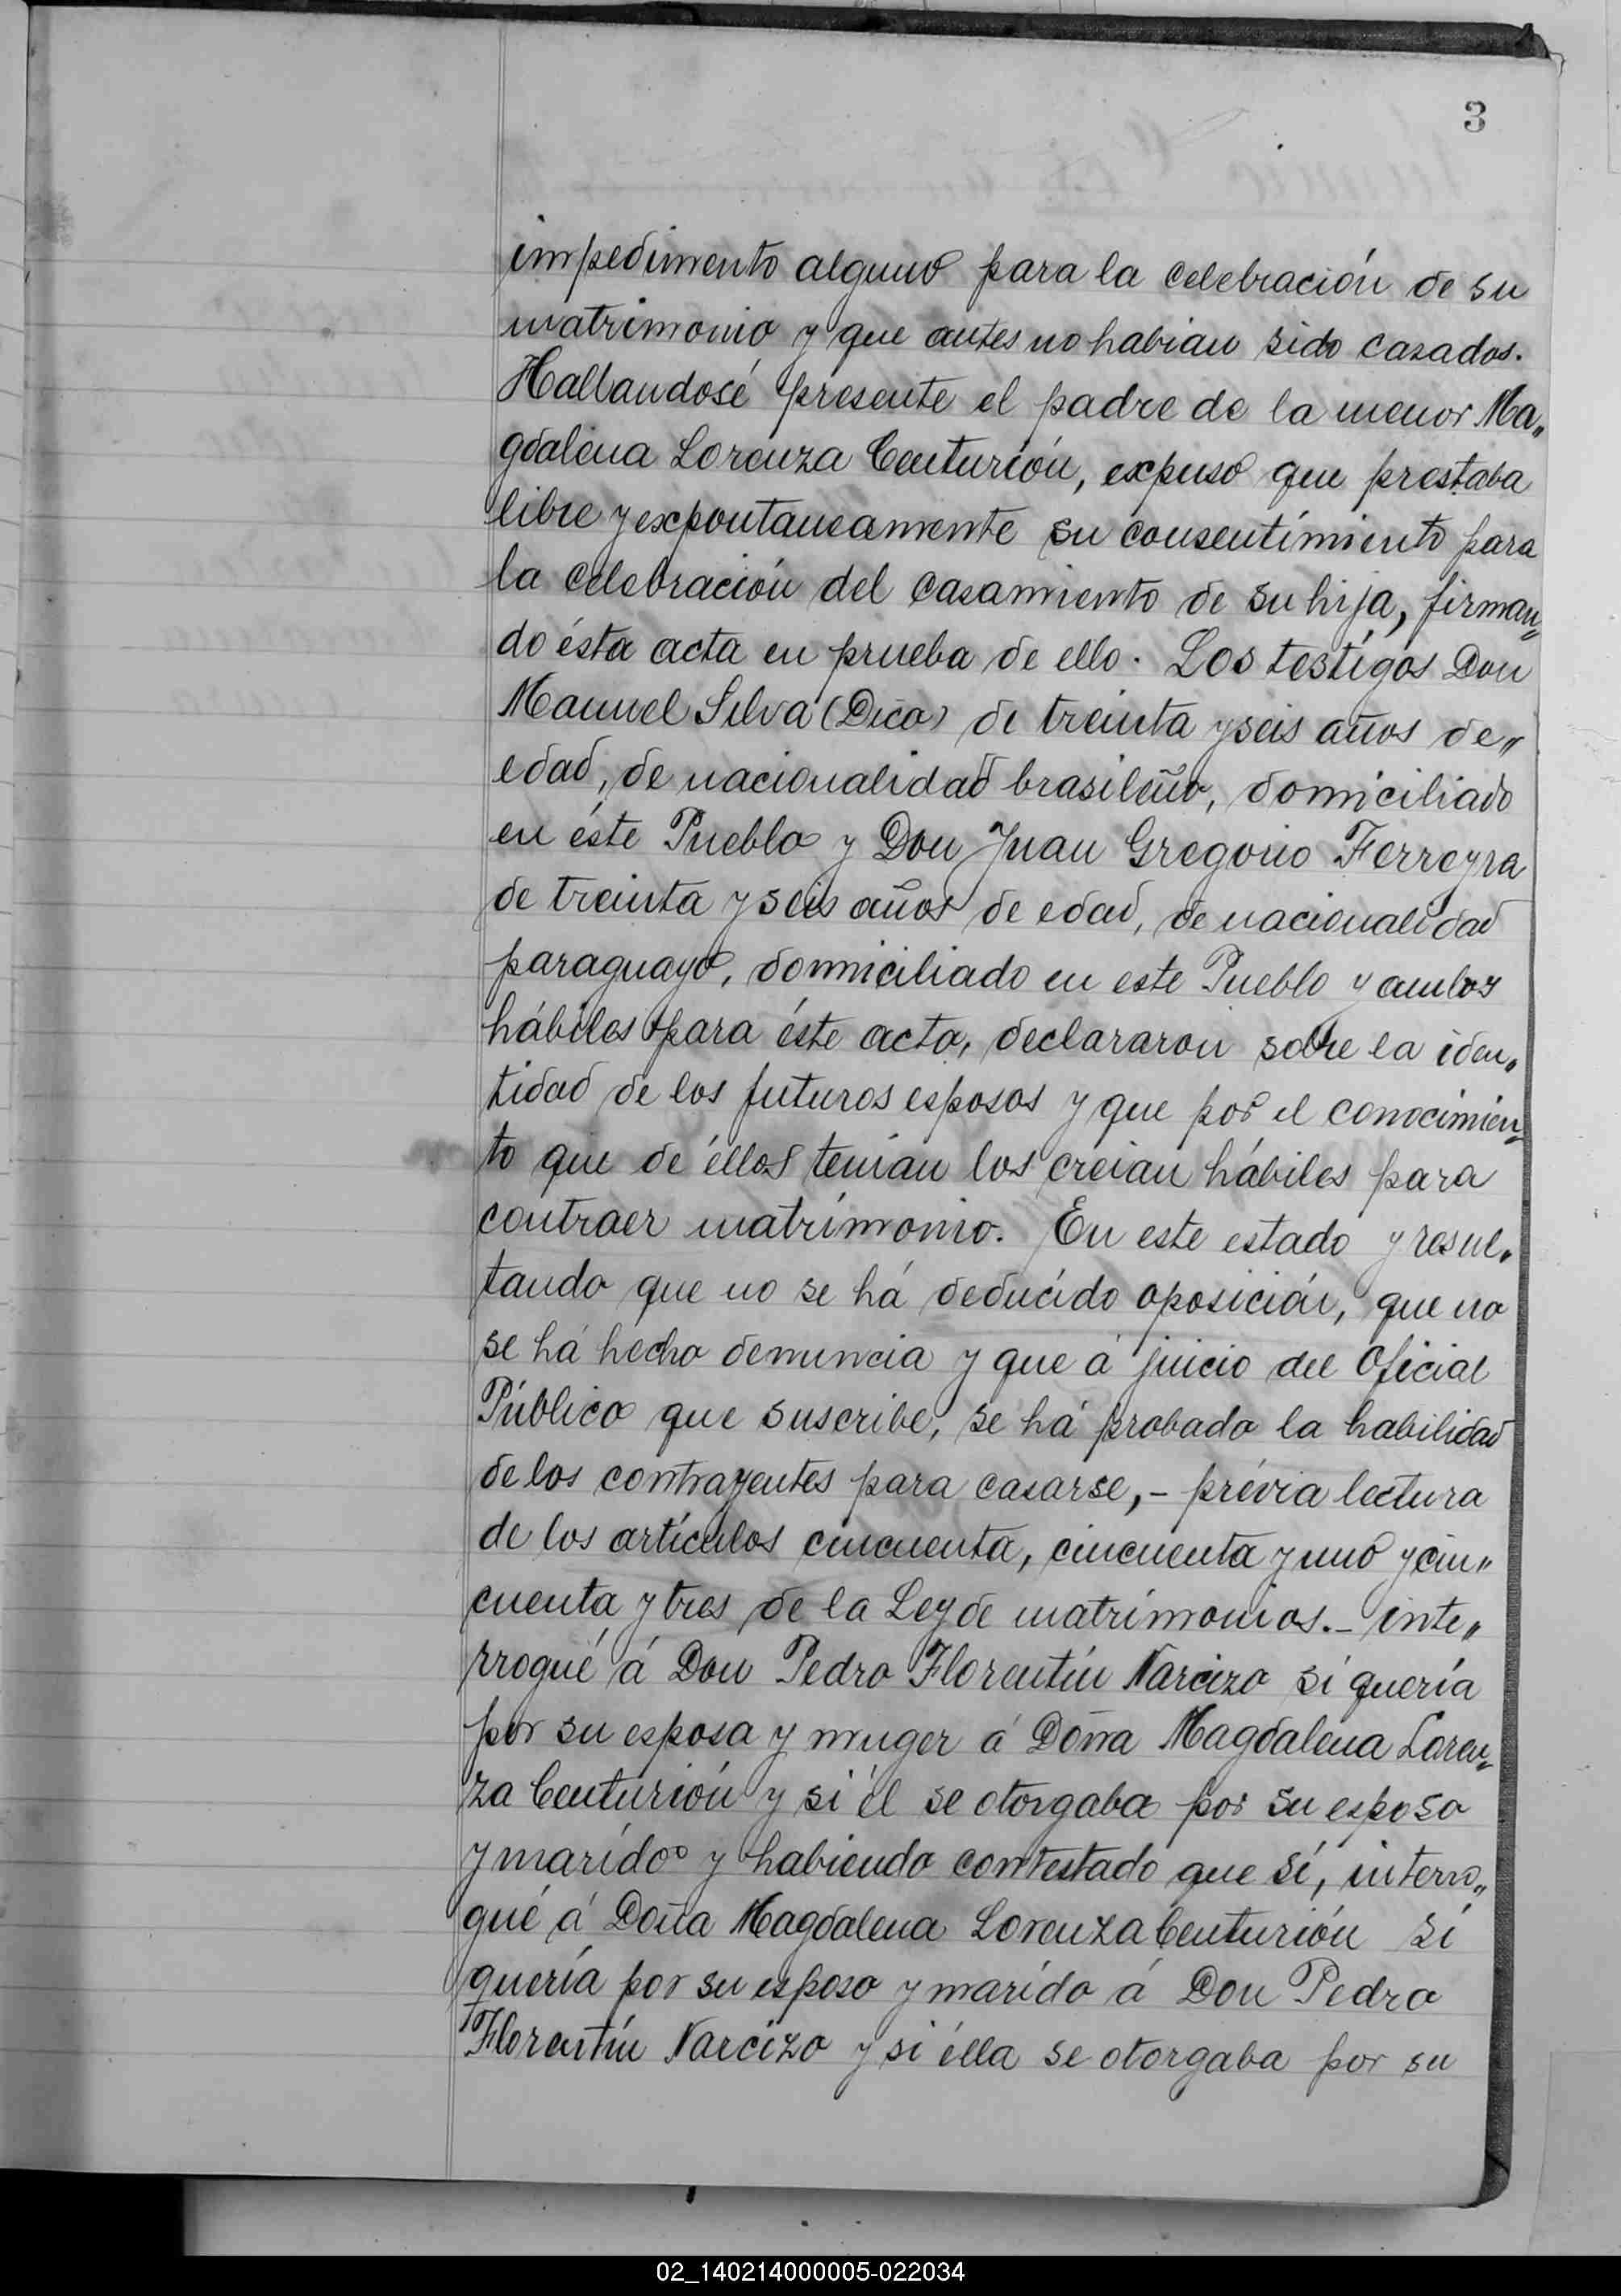 3
impedimento alguno para la celebración de su
matrimonio y que antes no habian sido casados.
Hallandosé presente el padre de la menor Ma„
gdalena Lorenza Centurión, expuso que prestaba
libre y expontaneamente su consentimiento para
la celebración del casamiento de su hija, firman„
do ésta acta en prueba de ello. Los testigos Don
Manuel Silva (Dico) de treinta y seis años de„
edad, de nacionalidad brasileño, domiciliado
en éste Pueblo y Don Juan Gregorio Ferreyra
de treinta y seis años de edad, de nacionalidad
paraguayo, domiciliado en este Pueblo y ambos
hábiles para éste acto, declararon sobre la iden„
tidad de los futuros esposos y que por el conocimien„
to que de éllos tenian los creian hábiles para
contraer matrimonio. En este estado y resul„
tando que no se há deducido oposición, que no
se há hecho denuncia y que á juicio del Oficial
Público que suscribe, se há probado la habilidad
de los contrayentes para casarse,- prévia lectura
de los artículos cincuenta, cincuenta y uno y cin„
cuenta y tres de la Ley de matrimonios.- inte„
rrogué á Don Pedro Florentín Narcizo si quería
por su esposa y muger á Doña Magdalena Loren„
za Centurión y si él se otorgaba por su esposo
y marido y habiendo contestado que sí, interro„
gué á Doña Magdalena Lorenza Centurión si
quería por su esposo y marido á Don Pedro
Florentín Narcizo y si élla se otorgaba por su
02_140214000005-022034